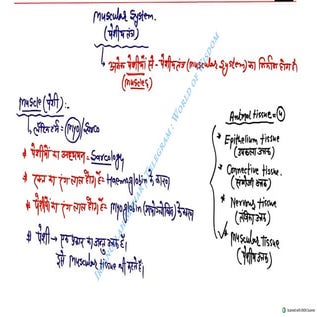 Muscular System.
(पेशीय तंत्र)
अनेक पेशीयों से - पेशीय तंत्र (Muscular System) का निर्माण होता है।
(Muscles)
Muscle (पेशी):-
लैटिन टर्म = (Myo)/Sarco
* पेशीयों का अध्ययन = Sarcology
* रक्त का रंग लाल होता है = Haemoglobin के कारण
* पेशीयों का रंग लाल होता है = Myoglobin के कारण
* पेशी → एक प्रकार का जन्तु उत्तक है।
इसे Muscular tissue भी कहते हैं।
Animal tissue = 4
* Epithelium tissue
(उपकला उत्तक)
* Connective tissue.
(संयोजी उत्तक)
* Nervous tissue
(तंत्रिका उत्तक)
* Muscular tissue
(पेशीय उत्तक)
TELEGRAM : WORLD OF WISDOM